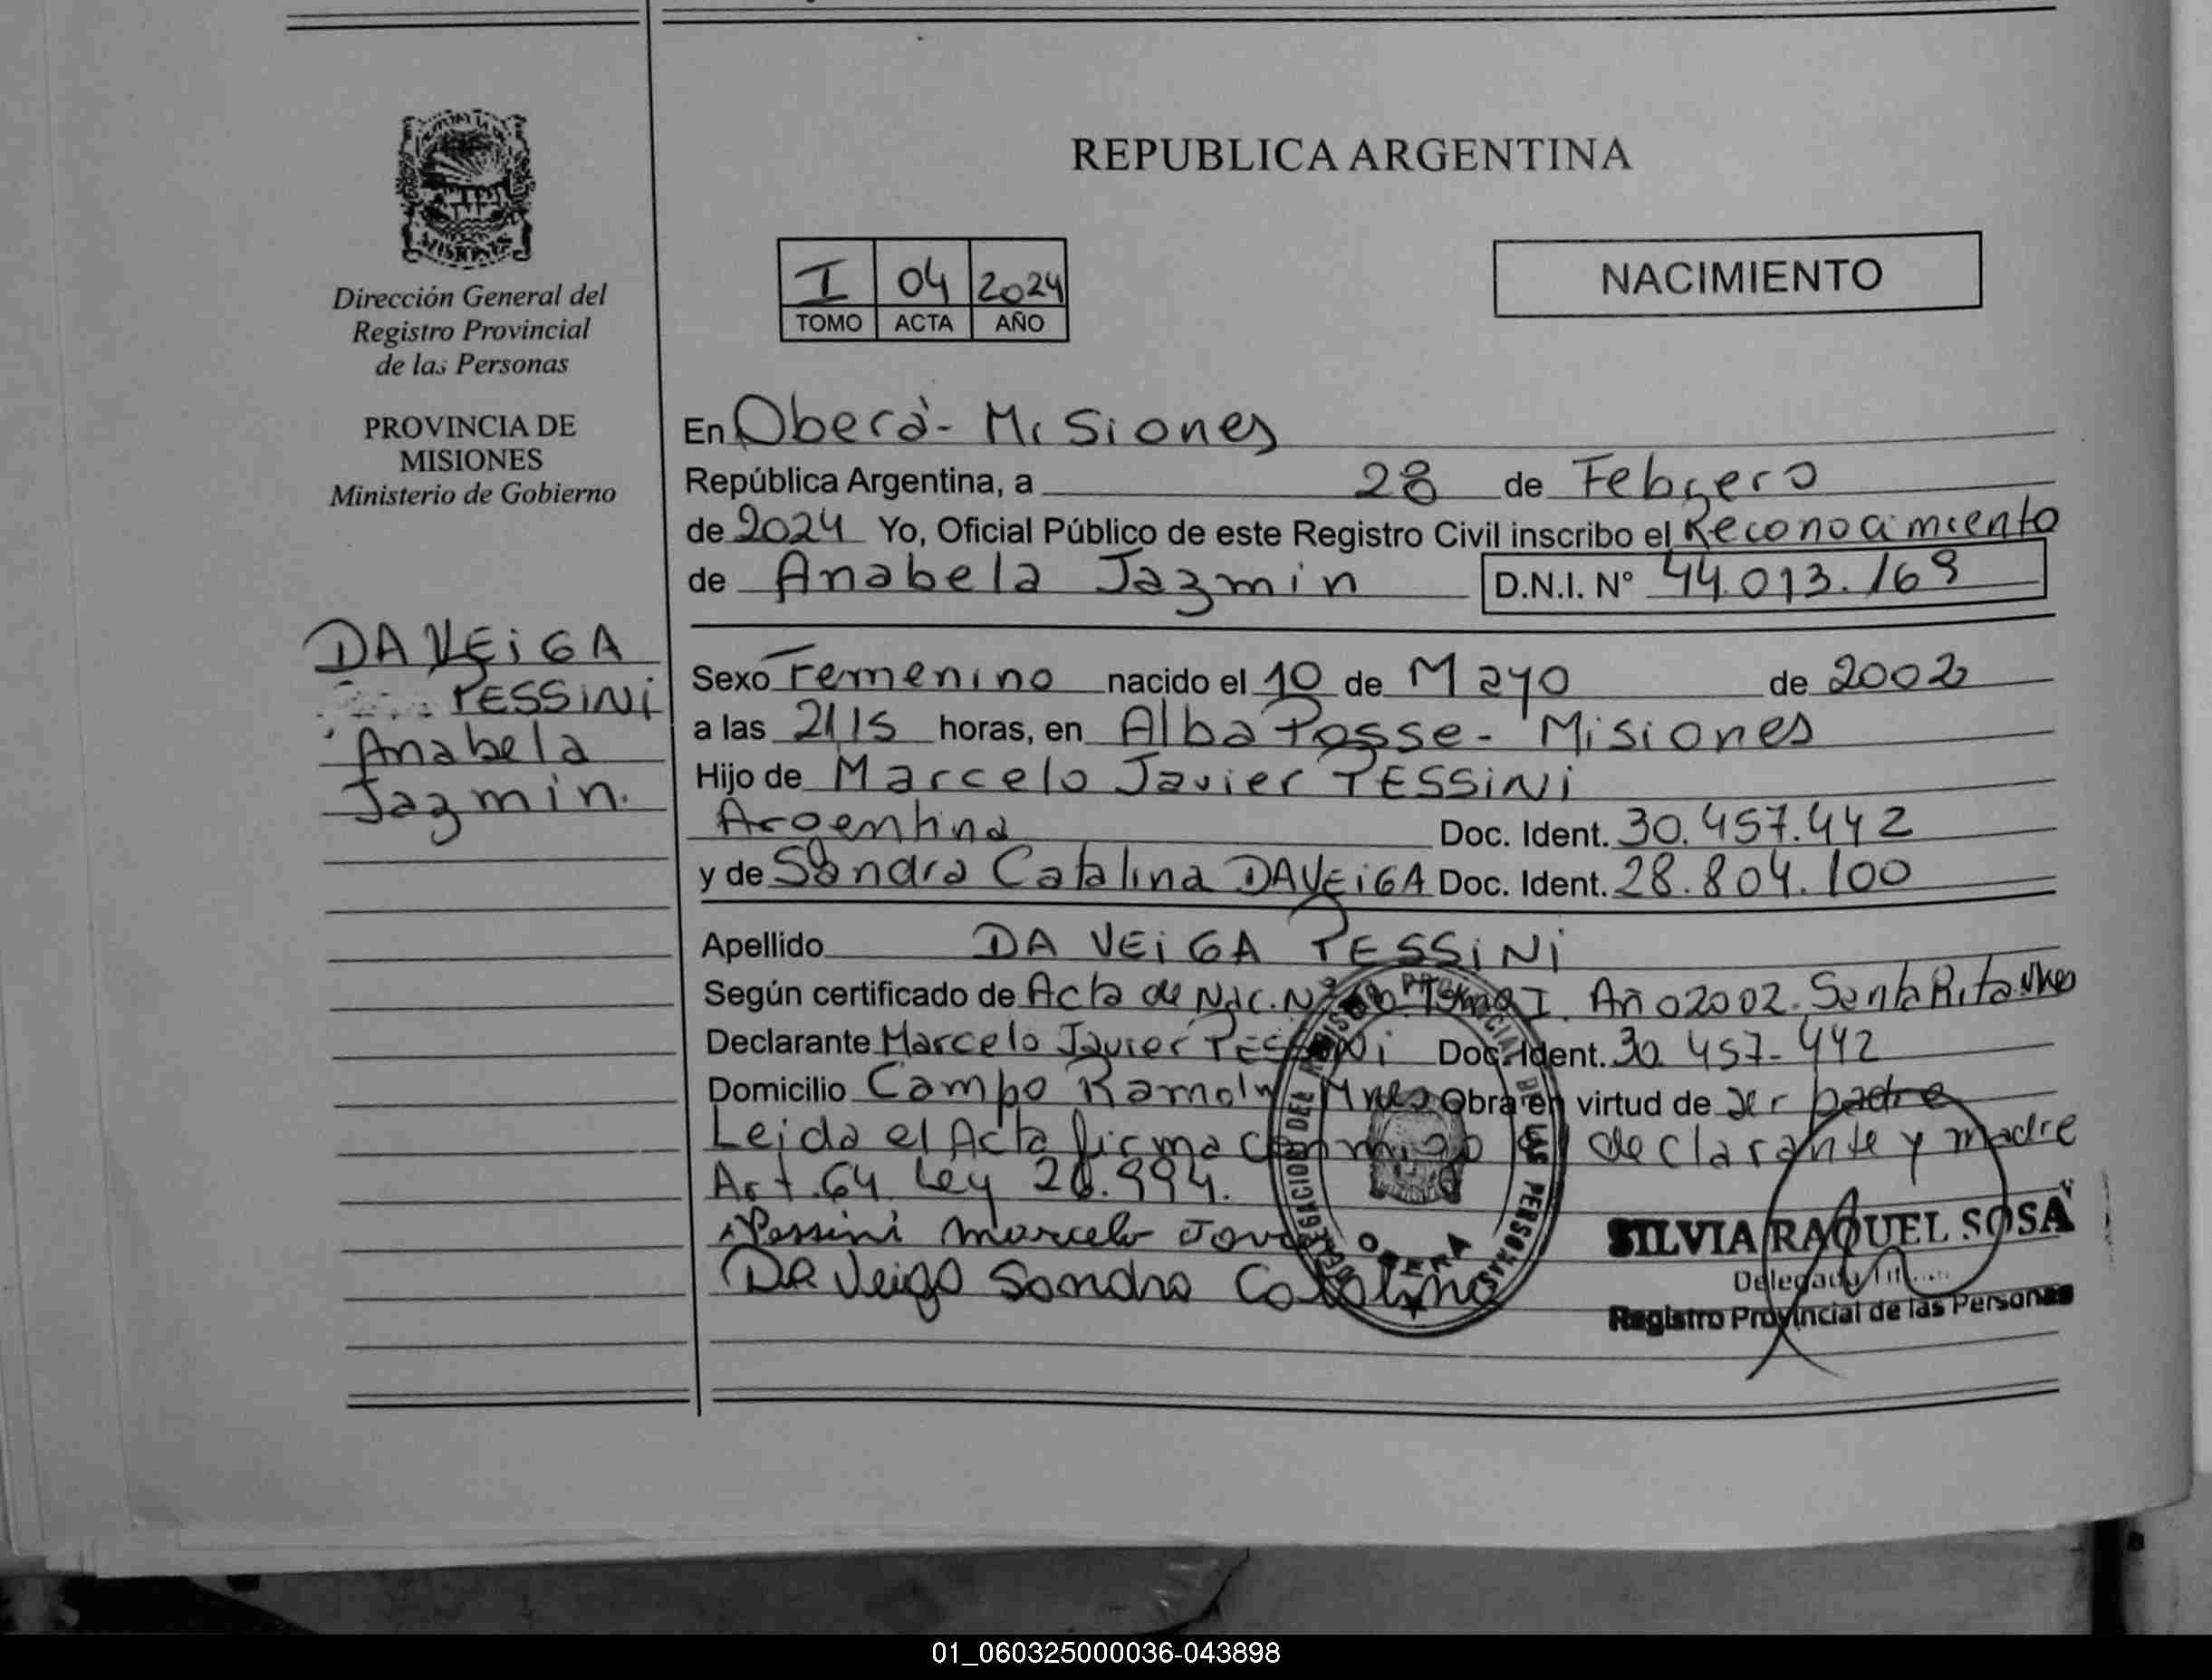 REPUBLICA ARGENTINA
Dirección General del
Registro Provincial
de las Personas
PROVINCIA DE
MISIONES
Ministerio de Gobierno
DA VEiGA
PESSiNi
Anabela
Jazmin.
I 04 2024
TOMO ACTA AÑO
NACIMIENTO
En Oberá - Misiones
República Argentina, a 28 de Febrero
de 2024 Yo, Oficial Público de este Registro Civil inscribo el Reconocimiento
de Anabela Jazmin D.N.I. Nº 44.013.169
Sexo Femenino nacido el 10 de Mayo de 2002
a las 2115 horas, en Alba Posse - Misiones
Hijo de Marcelo Javier PESSiNi
Argentina Doc. Ident. 30.457.442
y de Sandra Catalina DAVEiGA Doc. Ident. 28.804.100
Apellido DA VEiGA PESSiNi
Según certificado de Acta de Nac. Tomo I. Año 2002. Santa Rita
Declarante Marcelo Javier PESSiNi Doc. Ident. 30.457-442
Domicilio Campo Ramón Mnes Obra en virtud de ser padre
Leida el Acta firma conmigo el declarante y madre
Art. 64 Ley 26.994.
Pessini Marcelo
Da Veiga Sandra Catalina
DELEGACION DEL REGISTRO PROVINCIAL DE LAS PERSONAS
OBERA
SILVIA RAQUEL SOSA
Delegada
Registro Provincial de las Personas
01_060325000036-043898